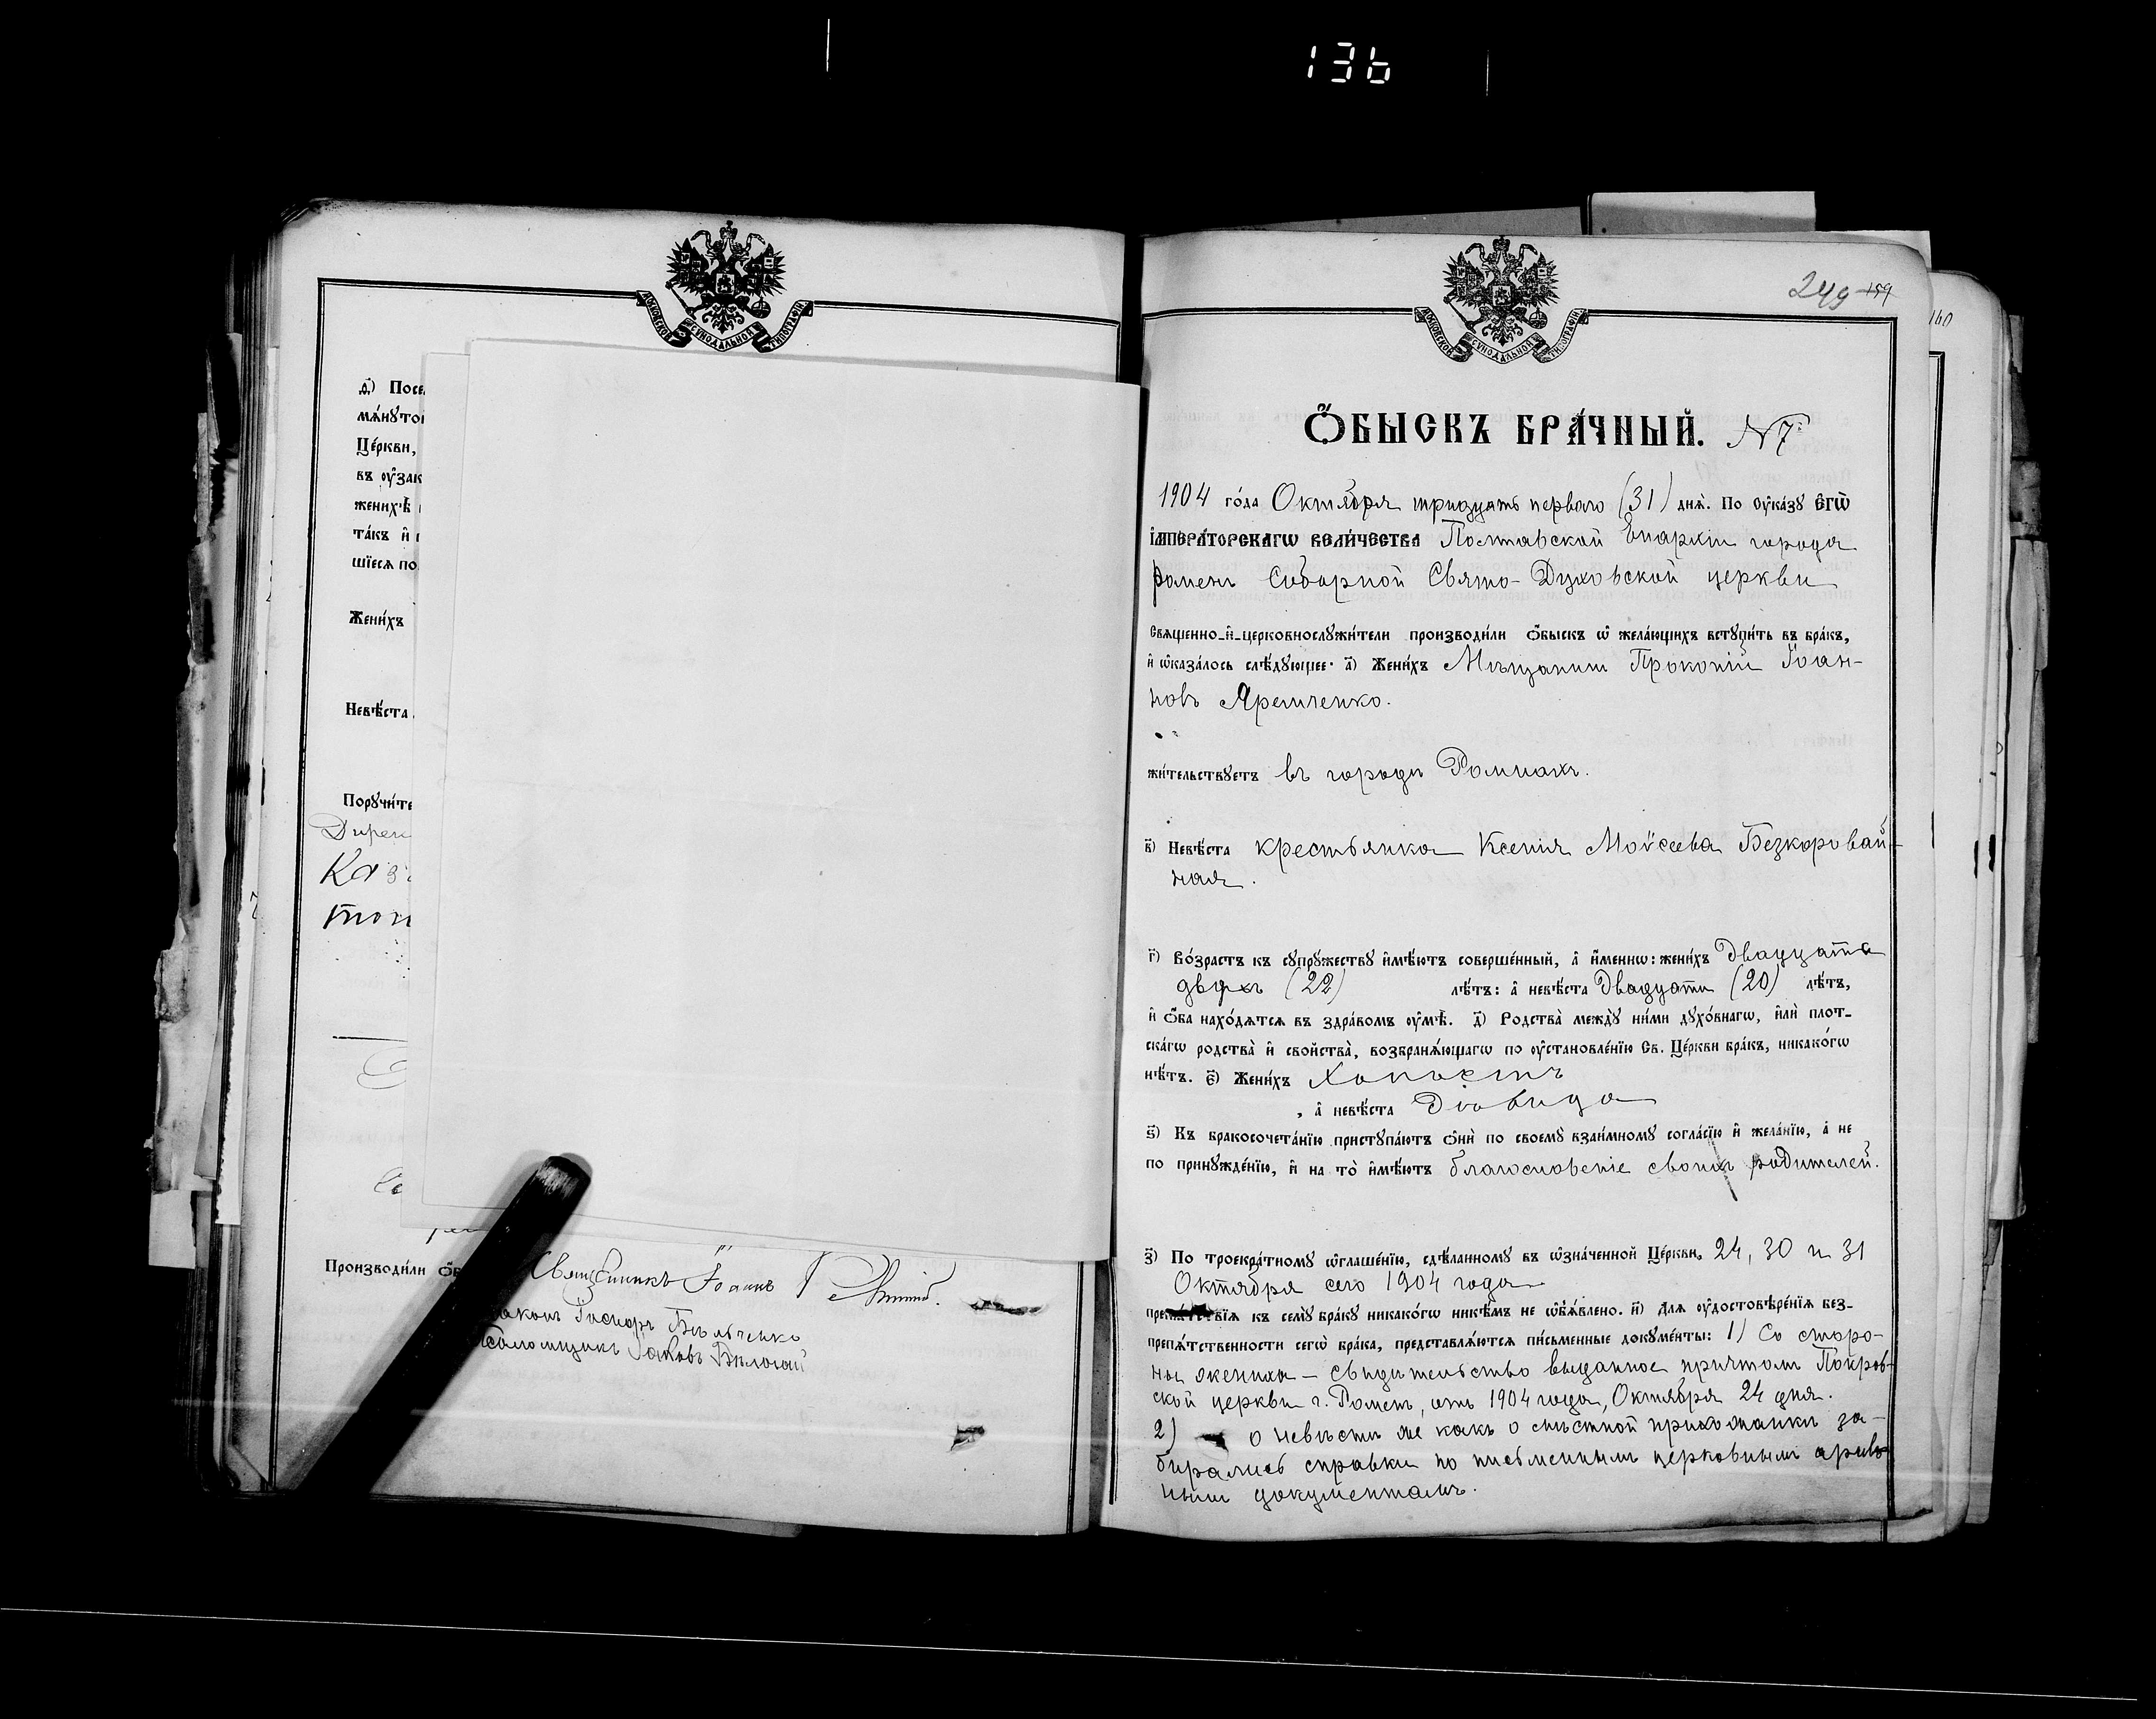 136
МОСКОВСКОЙ СУНОДАЛЬНОЙ ТИПОГРАФІИ
д҃) Посе
мѧ́нуто
Це́ркви,
въ ѹ҆зак
женихѣ
та́къ и҆
шїесѧ по
Жени́хъ
Невѣ́ста
Поручи́те
Каз
Произвoди́ли
Священникъ Іоаннъ
Псаломщикъ Іаковъ
МОСКОВСКОЙ СУНОДАЛЬНОЙ ТИПОГРАФІИ
249 159
160
Ѻ҆БЫСКЪ БРА́ЧНЫЙ. N 7
1904 го́да Октября тридцать перваго (31) днѧ̀. По ѹ҆ка́зу Є҆гѡ̀
И҆МПЕРА́ТОРСКАГѠ ВЕЛИ́ЧЕСТВА Полтавской Епархіи города
Роменъ Соборной Свято-Духовской церкви
Свѧщенно-и҆-церковнослужи́тели производи́ли ѻ҆́быскъ ѡ҆ жела́ющихъ вступи́ть въ бра́къ,
и҆ ѡ҆каза́лось слѣ́дующее: а҃) Жени́хъ Мѣщанинъ Прокопій Іоан-
новъ Яремченко.
жи́тельствуетъ въ городѣ Ромнахъ.
в҃) Невѣ́ста крестьянка Ксенія Моѵсеева Безкоровай-
ная.
г҃) Во́зрастъ къ супру́жеству и҆мѣ́ютъ соверше́нный, а҆ и҆́меннѡ: жени́хъ Двадцать
двухъ (22) лѣ́тъ: а҆ невѣ́ста Двадцати (20) лѣ́тъ,
и҆ ѻ҆́ба нахо́дѧтсѧ въ здра́вомъ ѹ҆мѣ̀. д҃) Родства̀ между̀ ни́ми духо́внагѡ, и҆лѝ плот-
ска́гѡ родства̀ и҆ свойства̀, возбранѧ́ющагѡ по ѹ҆становле́нїю Св. Це́ркви бра́къ, никако́гѡ
нѣ́тъ. є҃) Жени́хъ Холостъ
, а҆ невѣ́ста Дѣвица
ѕ҃) Къ бракосочета́нїю приступа́ютъ ѻ҆нѝ по своему̀ взаи́мному согла́сїю и҆ жела́нїю, а҆ не
по принужде́нїю, и҆ на то̀ и҆мѣ́ютъ благословеніе своихъ родителей.
з҃) По троекра́тному ѡ҆глаше́нїю, сдѣ́ланному въ ѡ҆зна́ченной Це́ркви, 24, 30 и 31
Октября сего 1904 года
препѧ́тствїѧ къ сему̀ бра́ку никако́гѡ никѣ́мъ не ѡ҆б̾ѧ́влено. и҃) Длѧ ѹ҆достовѣ́ренїѧ без-
препѧ́тственности сегѡ̀ бра́ка, представлѧ́ютсѧ пи́сьменные докуме́нты: 1) Со сторо-
ны жениха – свидѣтельство выданное причтомъ Покров-
ской церкви г. Роменъ, отъ 1904 года, Октября 24 дня.
2) о невѣстѣ же какъ о мѣстной прихожанкѣ за-
бирались справки по письменнымъ церковнымъ архив
нымъ документамъ.